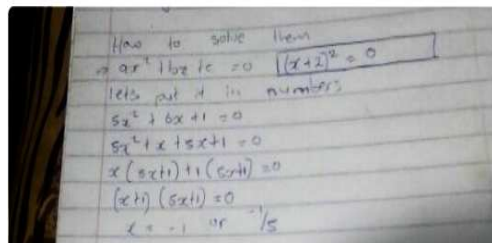 How to solve them
⇒ ax² + bx + c = 0 (x+2)² = 0
lets put it in numbers
5x² + 6x + 1 = 0
5x² + x + 5x + 1 = 0
x(5x+1) + 1(5x+1) = 0
(x+1) (5x+1) = 0
x = -1 or -1/5